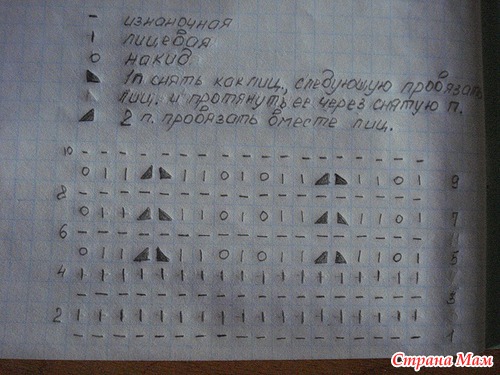 - изнаночная
| лицевая
o накид
◣ 1п снять как лиц., следующую провязать
лиц. и протянуть ее через снятую п.
◢ 2 п. провязать вместе лиц.
10 - - - - - - - - - - - - - - - - - -
o | | ◢ ◣ | | o | o | | ◢ ◣ | | o | 9
8 - - - - - - - - - - - - - - - - - -
o | | ◢ ◣ | | o | o | | ◢ ◣ | | o | 7
6 - - - - - - - - - - - - - - - - - -
o | | ◢ ◣ | | o | o | | ◢ ◣ | | o | 5
4 | | | | | | | | | | | | | | | | | |
- - - - - - - - - - - - - - - - - - 3
2 | | | | | | | | | | | | | | | | | |
- - - - - - - - - - - - - - - - - - 1
Страна Мам